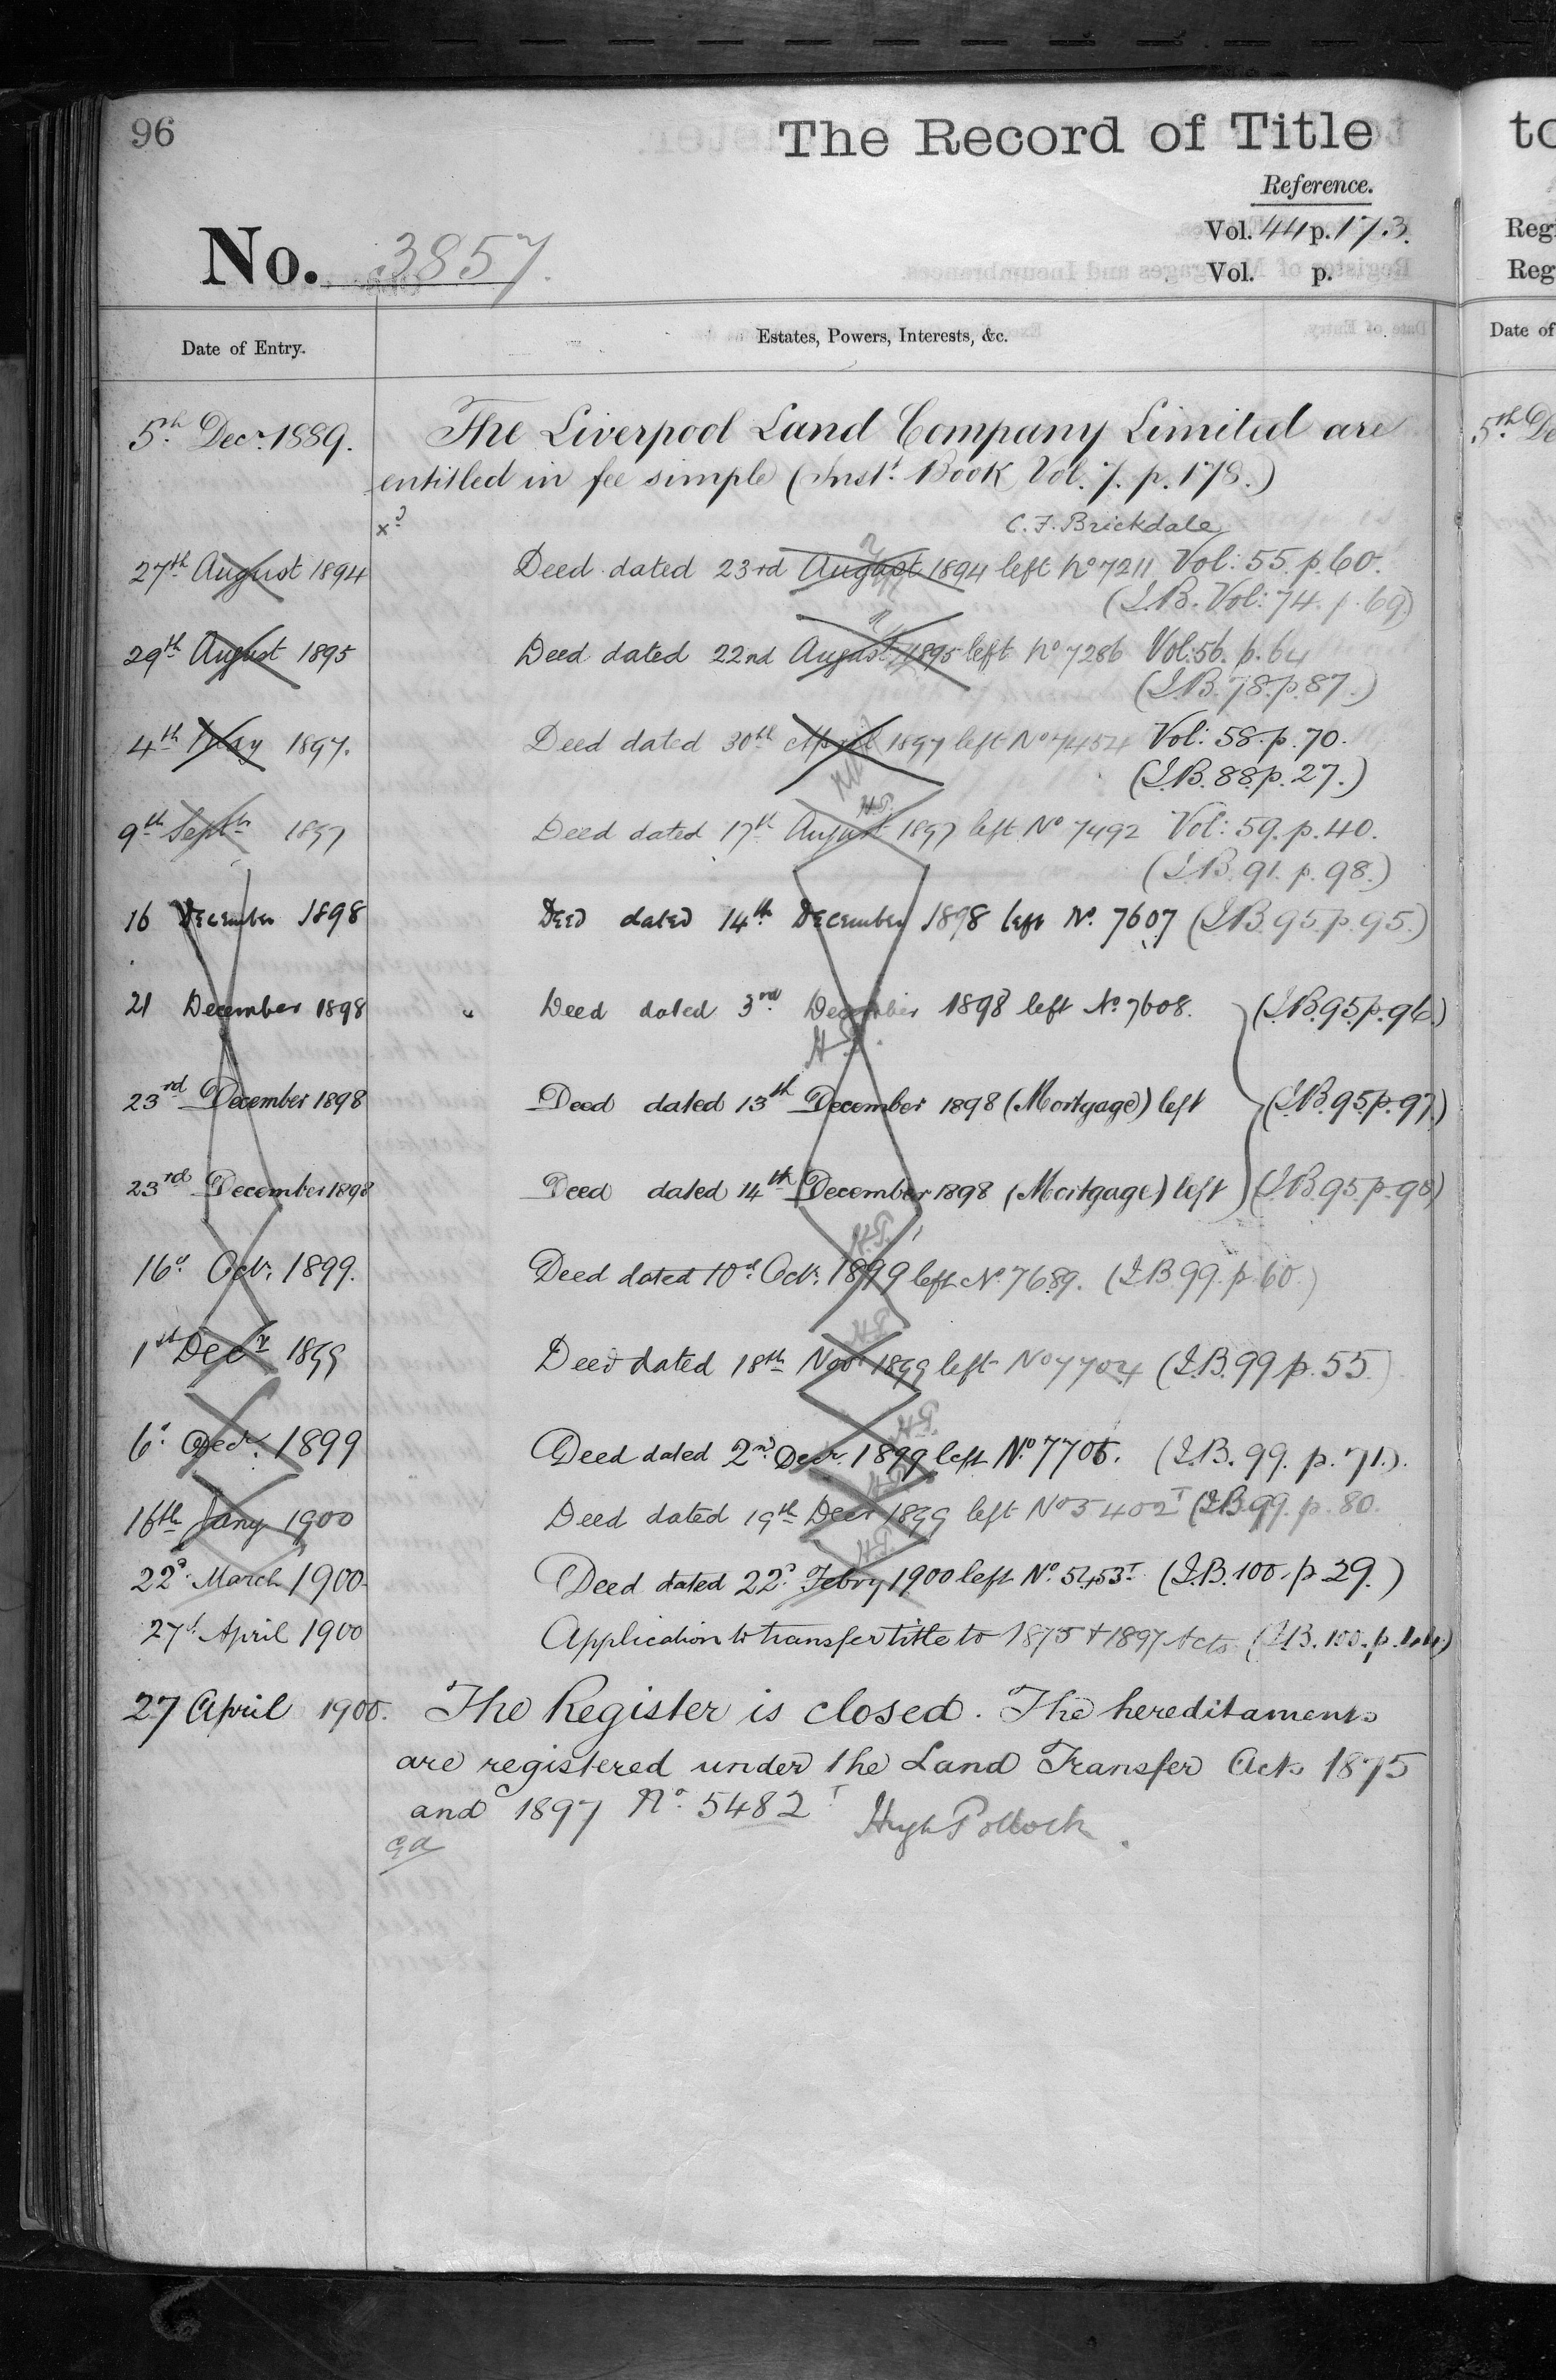 96
The Record of Title
Reference.
Vol. 44 p. 173.
No. 3857.
Vol. p.
Date of Entry.
Estates, Powers, Interests, &c.
5th Decr. 1889. The Liverpool Land Company Limited are
entitled in fee simple (Inst. Book Vol. 7. p. 178.)
C. F. Brickdale
27th August 1894 Deed dated 23rd August 1894 left No 7211 Vol: 55. p. 60.
(I.B. Vol: 74. p. 69)
29th August 1895 Deed dated 22nd August 1895 left No 7286 Vol: 56. p. 64
(I.B. 78. p. 87.)
4th May 1897. Deed dated 30th April 1897 left No 7454 Vol: 58. p. 70.
(I.B. 88. p. 27.)
H.P.
9th Septr 1897 Deed dated 17th August 1897 left No 7492 Vol: 59. p. 40.
(I.B. 91. p. 98.)
16 December 1898 Deed dated 14th December 1898 left No. 7607 (I.B. 95. p. 95.)
21 December 1898 Deed dated 3rd December 1898 left No. 7608. (I.B. 95. p. 96.)
H.P.
23rd December 1898 Deed dated 13th December 1898 (Mortgage) left (I.B. 95. p. 97.)
23rd December 1898 Deed dated 14th December 1898 (Mortgage) left (I.B. 95. p. 98)
H.P.
16d Octr. 1899. Deed dated 10d Octr. 1899 left No. 7689. (I.B. 99. p. 60.)
H.P.
1st Decr 1899 Deed dated 18th Novr 1899 left No 7704 (I.B. 99 p. 55.)
H.P.
6d Decr. 1899 Deed dated 2nd Decr. 1899 left No. 7705. (I.B. 99. p. 71.).
H.P.
16th Jany 1900 Deed dated 19th Decr 1899 left No 5402T (I.B. 99. p. 80.
H.P.
22d March 1900 Deed dated 22d Febry 1900 left No. 5453T. (I.B. 100. p. 29.)
27d April 1900 Application to transfer title to 1875 + 1897 Acts. (I.B. 100. p.
27 April 1900. The Register is closed. The hereditaments
are registered under the Land Transfer Acts 1875
and 1897 No. 5482T Hugh Pollock.
to
Regi
Reg
Date of
5th De